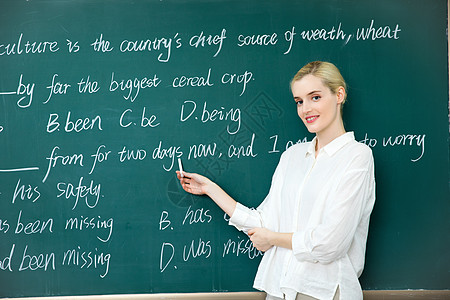 culture is the country's chief source of weath, wheat
by far the biggest cereal crop.
B.been C.be D.being
from for two days now, and I to worry
his safety.
has been missing B.has
had been missing D.was missing